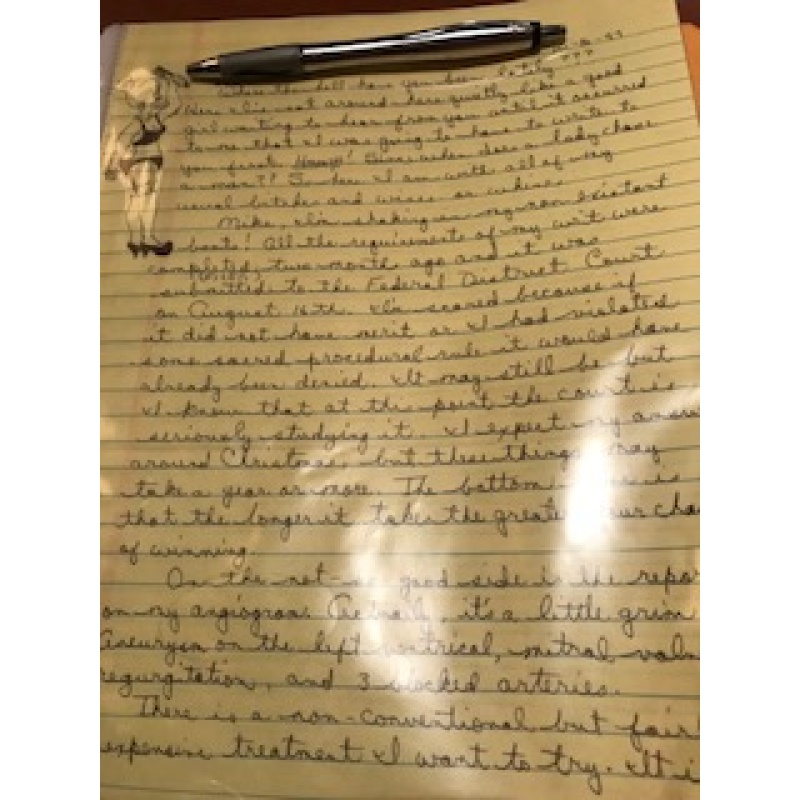 Where the hell have you been lately???
Here I'm sat around here quietly like a good
girl waiting to hear from you until it occurred
to me that I was going to have to write to
you first. Since when does a lady chase
a man?! So here I am with all of my
usual bitches and wines or whines.
Mike, I'm shaking in my non existant
boots! All the requirements of my writ were
completed, two month ago and it was
submitted to the Federal District Court
on August 16th. I'm scared because if
it did not have merit or I had violated
some sacred procedural rule it would have
already been denied. It may still be but
I know that at this point the court is
seriously studying it. I expect my answer
around Christmas, but these things may
take a year or more. The bottom is
that the longer it takes the greater our cha
of winning.
On the not-so good side is the repor
on my angiogram. Actually, it's a little grim
Aneurysm on the left ventrical, mitral valv
regurgitation, and 3 blocked arteries.
There is a non-conventional but fairl
expensive treatment I want to try. It i